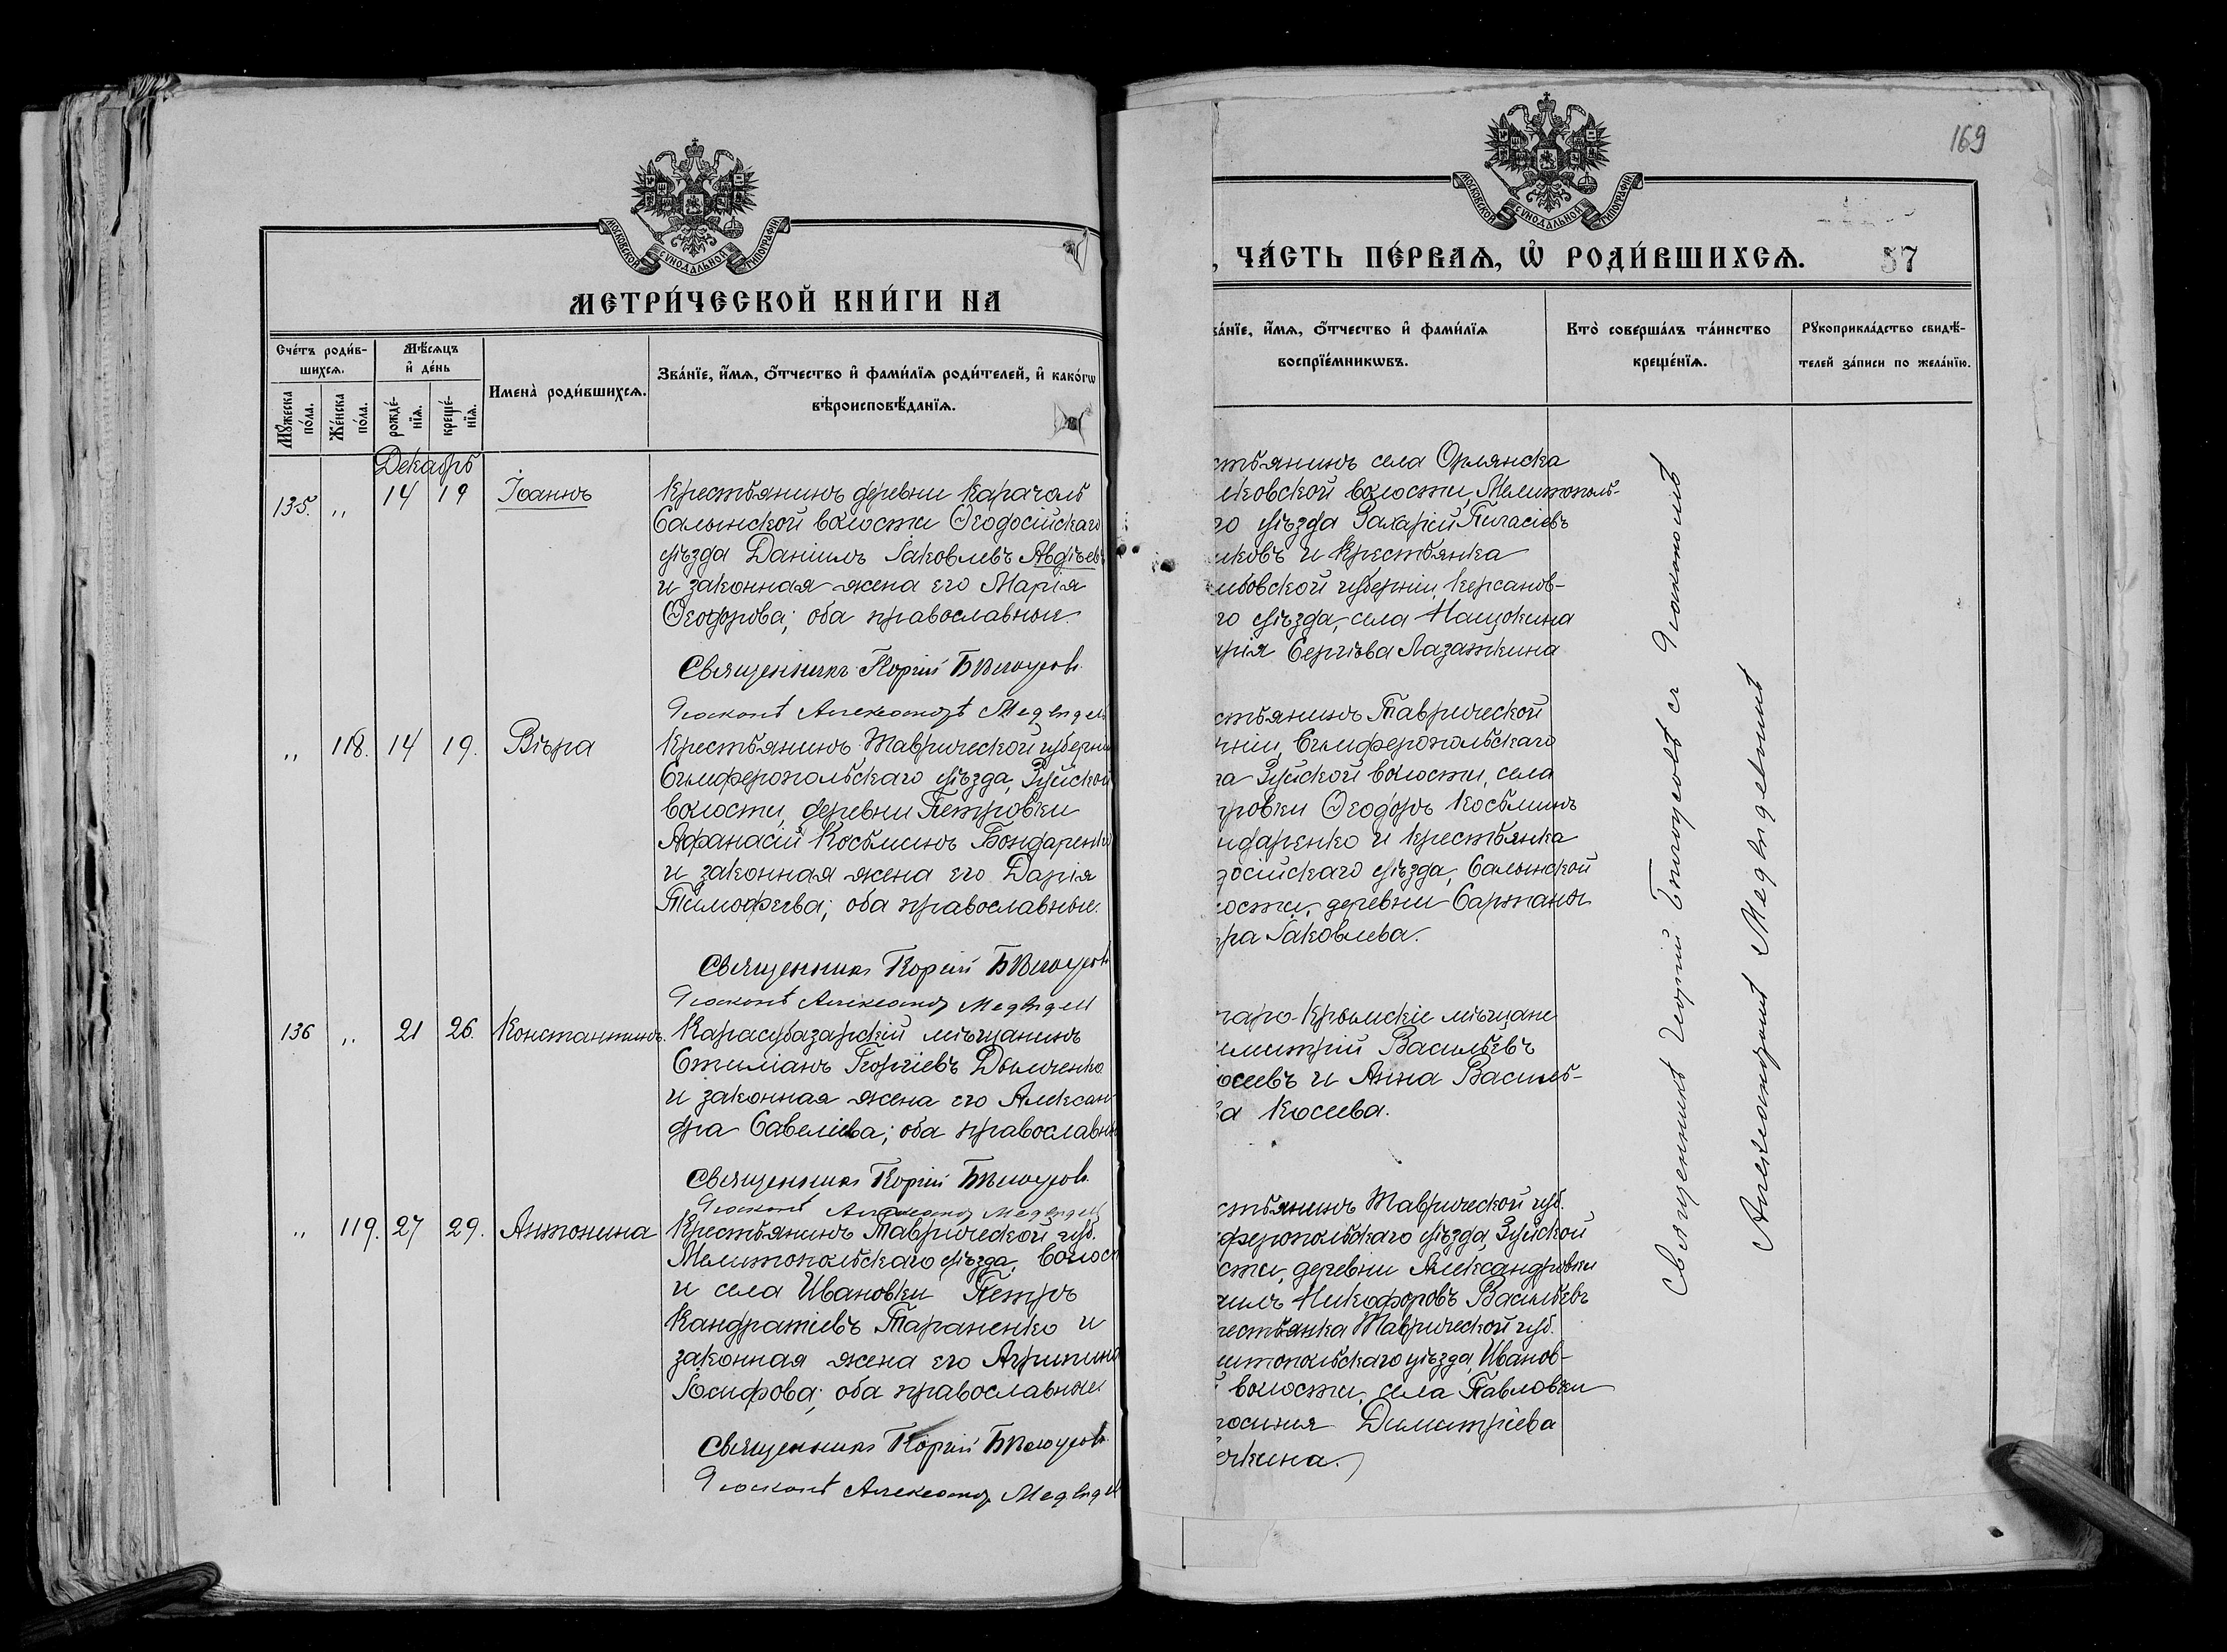 МОСКОВСКОЙ СУНОДАЛЬНОЙ ТИПОГРАФІИ
МЕТРИ́ЧЕСКОЙ КНИ́ГИ НА
Сче́тъ роди́в-
шихсѧ.
Мѣ́сѧцъ
и҆ де́нь
Имена̀ роди́вшихсѧ.
Зва́нїе, и҆́мѧ, ѻ҆́тчество и҆ фами́лїѧ роди́телей, и҆ како́гѡ
вѣроисповѣ́данїѧ.
Мꙋ́жеска
по́ла.
Же́нска
по́ла.
рожде́-
нїѧ.
креще́-
нїѧ.
Декабрь
135. " 14 19 Іоаннъ Крестьянинъ деревни Карачоль
Салынской волости Ѳеодосійскаго
уѣзда Даніилъ Іаковлевъ Авдѣевъ
и законная жена его Марія
Ѳеодорова; оба православные.
Священникъ Георгій Бѣлоусовъ.
Діаконъ Александръ Медвѣдев
" 118. 14 19. Вѣра Крестьянинъ Таврической губерніи
Симферопольскаго уѣзда, Зуйской
волости, деревни Петровки
Афанасій Косьминъ Бондаренко
и законная жена его Дарія
Тимофеева; оба православные.
Священникъ Георгій Бѣлоусовъ
Діаконъ Александръ Медвѣдев
136 " 21 26. Константинъ. Карасубазарскій мѣщанинъ
Стиліанъ Георгіевъ Дымченко
и законная жена его Алексан-
дра Савеліева; оба православны
Священникъ Георгій Бѣлоусовъ.
Діаконъ Александръ Медвѣдев
" 119. 27 29. Антонина Крестьянинъ Таврической губ.
Мелитопольскаго уѣзда, волост
и села Ивановки Петръ
Кандратіевъ Тараненко и
законная жена его Агрипина
Іосифова; оба православные
Священникъ Георгій Бѣлоусовъ.
Діаконъ Александръ Медвѣдев
169
МОСКОВСКОЙ СУНОДАЛЬНОЙ ТИПОГРАФІИ
, ЧА́СТЬ ПЕ́РВАѦ, Ѡ҆ РОДИ́ВШИХСѦ. 57
ва́нїе, и҆́мѧ, ѻ҆́тчество и҆ фами́лїѧ
воспрїе́мникѡвъ.
Кто̀ соверша́лъ та́инство
креще́нїѧ.
Рꙋкоприкла́дство свидѣ́-
телей за́писи по жела́нїю.
стьянинъ села Орлянска
лковской волости, Мелитополь-
го уѣзда Захарій Пигасіевъ
иковъ и Крестьянка
мбовской губерніи, Керсанов-
го уѣзда, села Нащокина
арія Сергіева Лазаткина
стьянинъ Таврической
рніи, Симферопольскаго
да Зуйской волости, села
тровки Ѳеодоръ Косьминъ
ндаренко и крестьянка
досійскаго уѣзда, Салынской
лости, деревни Сарпанъ
ѣра Іаковлева.
таро-Крымскіе мѣщане
имитрій Васильевъ
осеевъ и Анна Василь-
ва Косеева.
стьянинъ Таврической губ.
феропольскаго уѣзда, Зуйской
сти, деревни Александровки
аилъ Никофоровъ Васильевъ
рестьянка Таврической губ.
литопольскаго уѣзда, Иванов-
й волости, села Павловки
росинія Димитріева
ечкина.
Священникъ Георгій Бѣлоусовъ съ Діакономъ
Александромъ Медвѣдевымъ